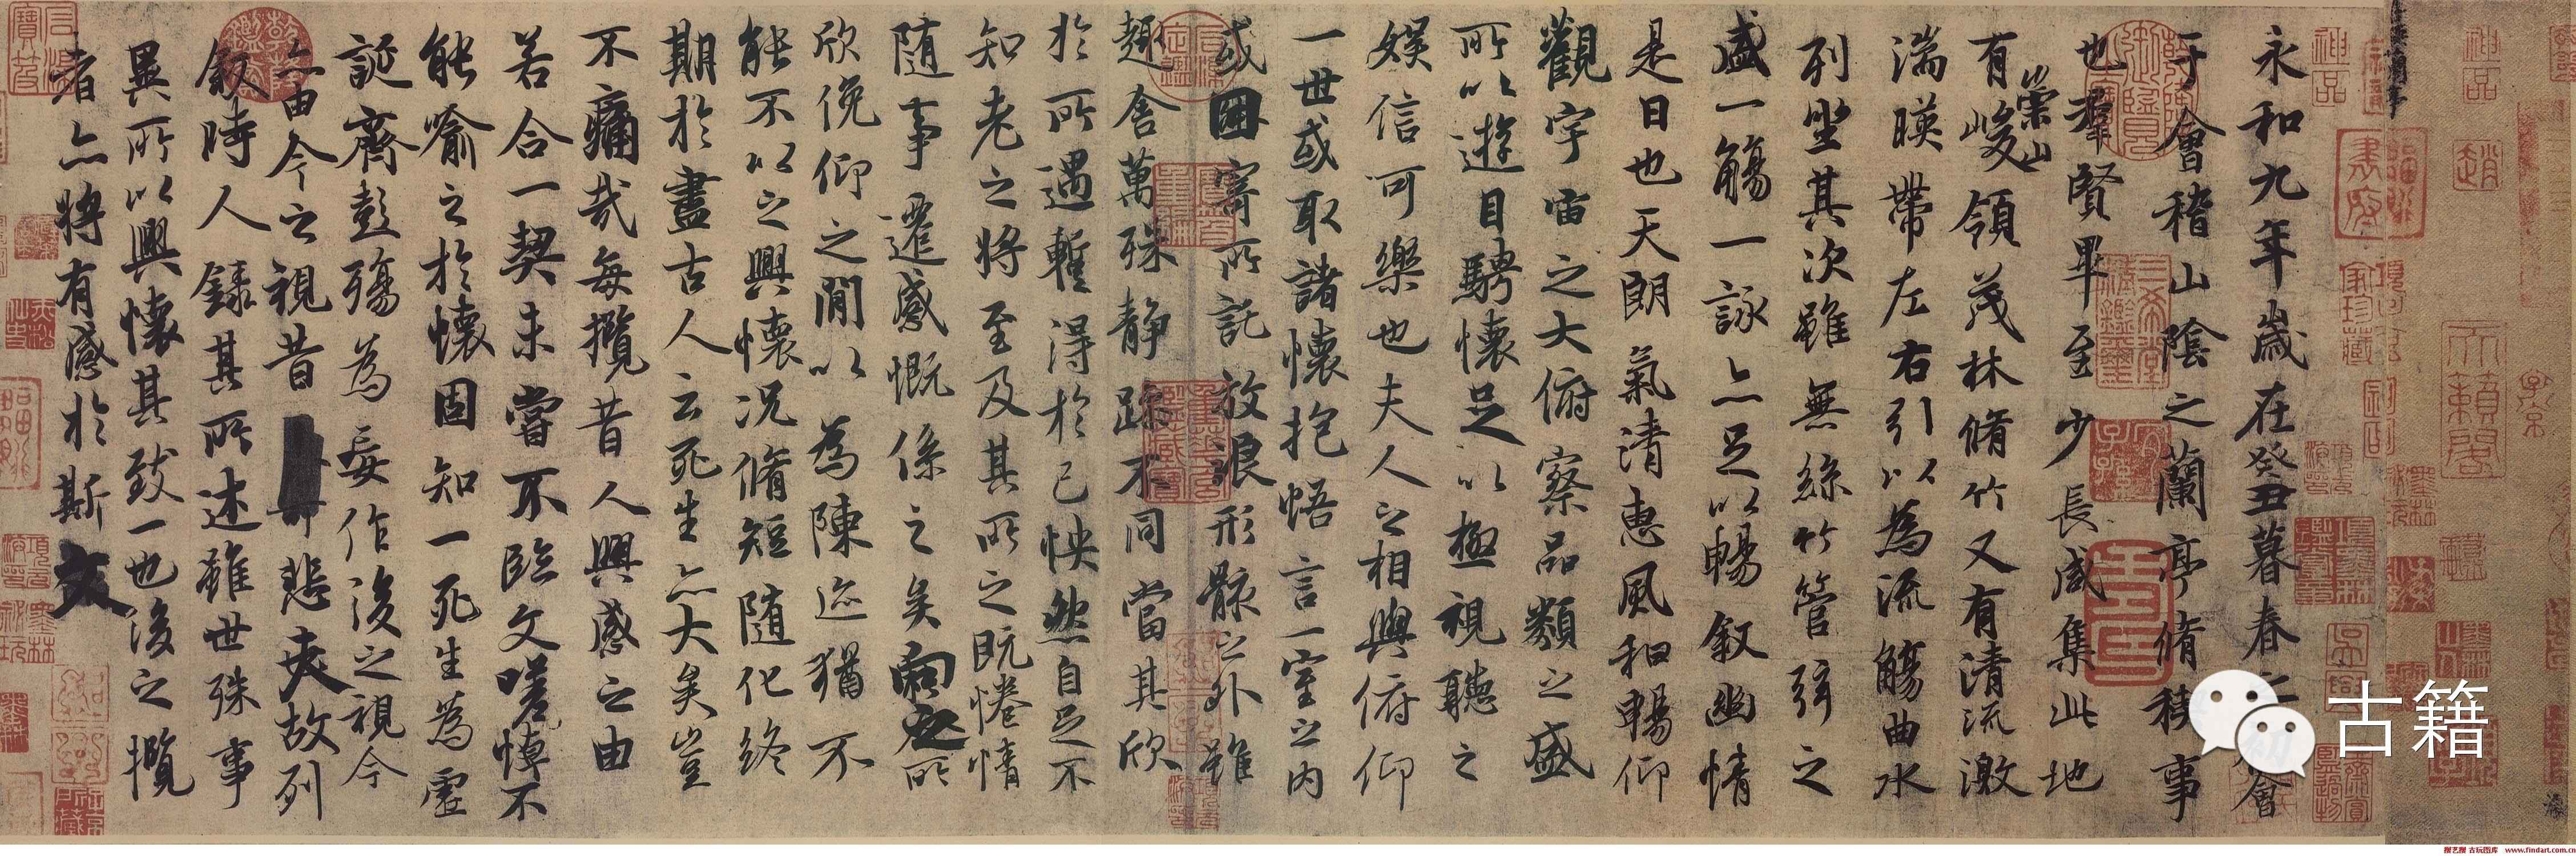 永和九年歲在癸丑暮春之會
于會稽山陰之蘭亭脩禊事
也羣賢畢至少長咸集此地
有崇山峻領茂林脩竹又有清流激
湍暎帶左右引以為流觴曲水
列坐其次雖無絲竹管弦之
盛一觴一詠亦足以暢敘幽情
是日也天朗氣清惠風和暢仰
觀宇宙之大俯察品類之盛
所以遊目騁懷足以極視聽之
娛信可樂也夫人之相與俯仰
一世或取諸懷抱悟言一室之內
或因寄所託放浪形骸之外雖
趣舍萬殊靜躁不同當其欣
於所遇暫得於己怏然自足不
知老之將至及其所之既惓情
隨事遷感慨係之矣向之所
欣俛仰之閒以為陳迹猶不
能不以之興懷況脩短隨化終
期於盡古人云死生亦大矣豈
不痛哉每攬昔人興感之由
若合一契未嘗不臨文嗟悼不
能喻之於懷固知一死生為虛
誕齊彭殤為妄作後之視今
亦由今之視昔悲夫故列
敘時人錄其所述雖世殊事
異所以興懷其致一也後之攬
者亦將有感於斯文
神品
古籍
www.findart.com.cn